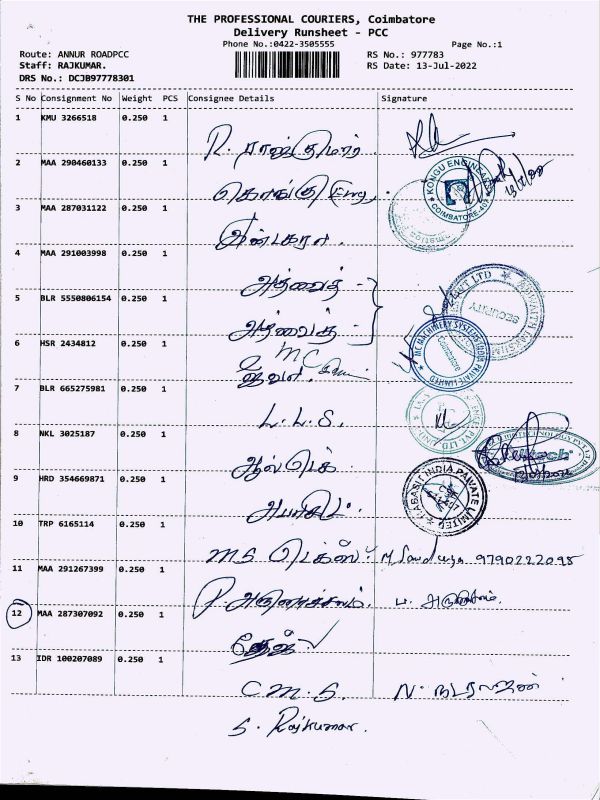 THE PROFESSIONAL COURIERS, Coimbatore
Delivery Runsheet - PCC
Phone No.:0422-3505555
Page No.:1
Route: ANNUR ROADPCC
RS No.: 977783
Staff: RAJKUMAR.
RS Date: 13-Jul-2022
DRS No.: DCJB97778301
S No Consignment No Weight PCS Consignee Details Signature
1 KMU 3266518 0.250 1
R. ராஜ்குமார்
2 MAA 290460133 0.250 1
கொங்கு Eng
KONGU ENGINEERS
COIMBATORE
3 MAA 287031122 0.250 1
4 MAA 291003998 0.250 1
அத்வைத்
5 BLR 5550806154 0.250 1
அத்வைத்
SECURITY
6 HSR 2434812 0.250 1
MC
MC MACHINERY SYSTEMS INDIA PRIVATE LIMITED
Coimbatore
7 BLR 665275981 0.250 1
L.L.S.
8 NKL 3025187 0.250 1
9 HRD 354669871 0.250 1
HABASIT INDIA PRIVATE LIMITED
10 TRP 6165114 0.250 1
MS டெக்ஸ் 9790222098
11 MAA 291267399 0.250 1
P. அருணாச்சலம்.
12 MAA 287307092 0.250 1
தேஜ்
13 IDR 100207089 0.250 1
C.M.S. N. நடராஜன்
S. Rajkumar.